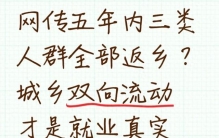 网传五年内三类
人群全部返乡？
城乡双向流动
才是就业真实